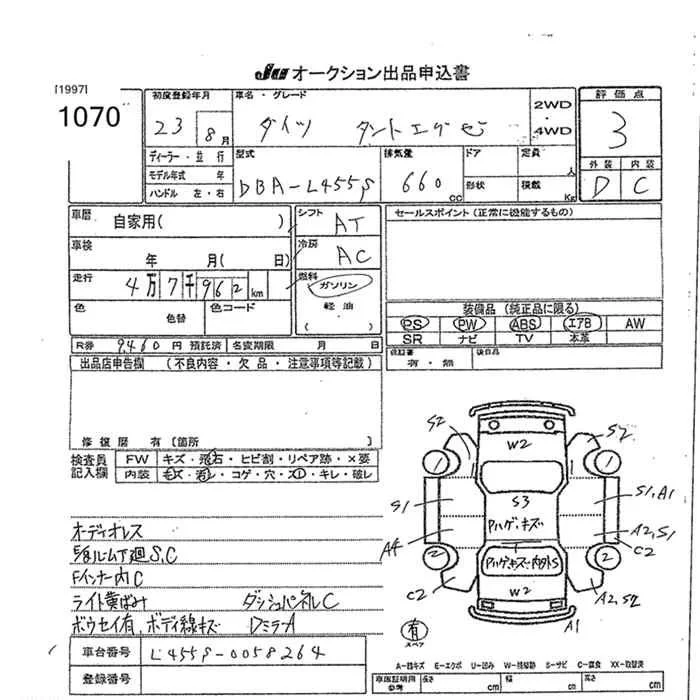 JU オークション出品申込書
[1997]
1070
初度登録年月
23 8月
車名・グレード
ダイハツ タントエグゼ
2WD
・
4WD
評価点
3
外装 内装
D C
ディーラー・並行
モデル年式 年
ハンドル 左・右
型式
DBA-L455S
排気量
660 CC
ドア
形状
定員 人
積載 Kg
車暦 自家用( )
シフト AT
車検 年 月( 日)
冷房 AC
走行 4万7千962km
燃料
ガソリン
軽油
( )
色 色替
色コード
セールスポイント(正常に機能するもの)
装備品(純正品に限る)
PS PW ABS エアB AW
SR ナビ TV 本革
R券 9,460 円 預託済 名変期限 月 日
保証書 有・無
後日品
出品店申告欄 (不良内容・欠品・注意事項等記載)
修復歴 有〔箇所 〕
検査員
記入欄
FW キズ・飛石・ヒビ割・リペア跡・×要
内装 モズ・コゲ・穴・スレ・キレ・破レ
オーディオレス
ルーム下廻S,C
Fインナー内C
ライト黄ばみ ダッシュパネルC
ボウセイ有 ボディ線キズ DミラーA
車台番号 L455S-0058264
登録番号
S2 W2 S2
1 1
S1 S3 S1,A1
Pハゲ,キズ
A4 A2,S1
C2
2 2
Pハゲキズ・内外S
C2 W2 A2,S2
A1
有
スペア
A-線キズ E-エクボ U-凹み W-補修跡 S-サビ C-腐食 XX-取替済
車庫証明用
参考
長さ cm
幅 cm
高さ cm